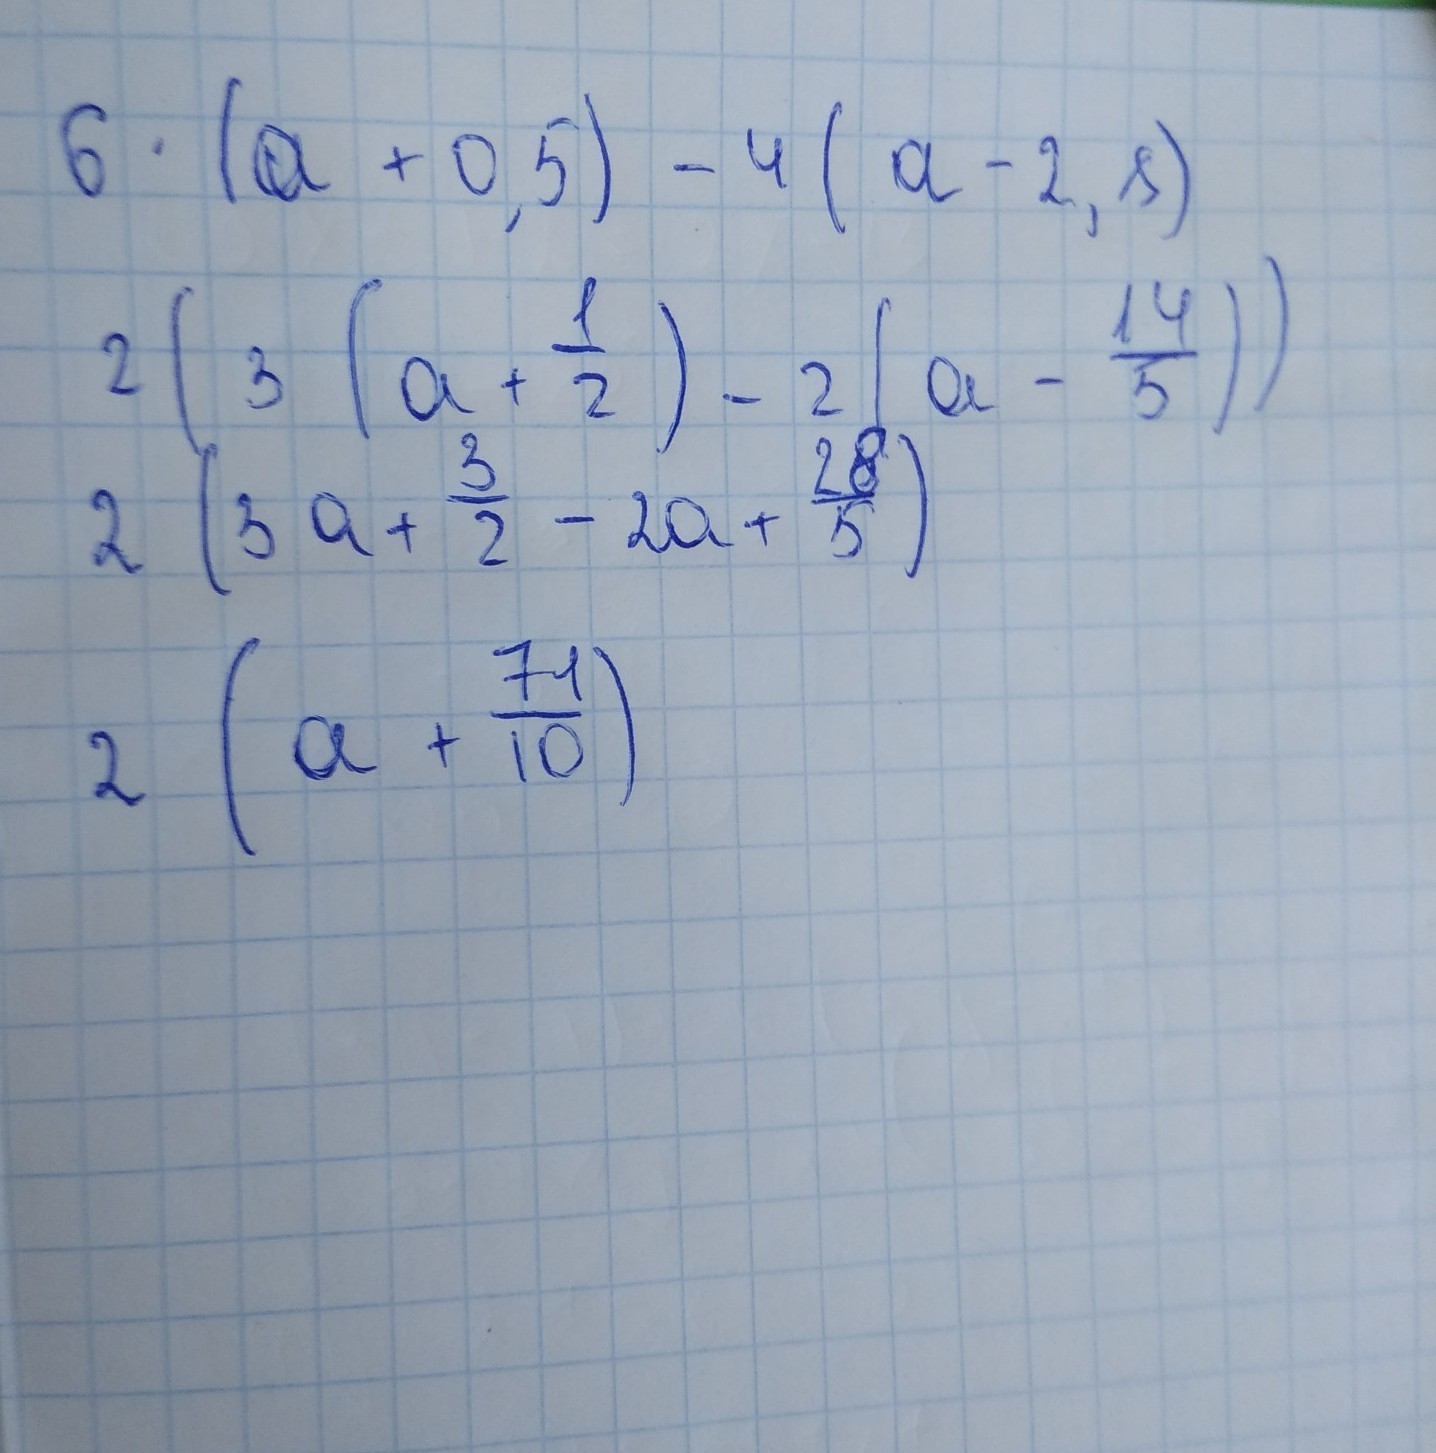 6 · (a + 0,5) - 4 (a - 2,8)
2 (3 (a + 1/2) - 2 (a - 14/5))
2 (3a + 3/2 - 2a + 28/5)
2 (a + 71/10)